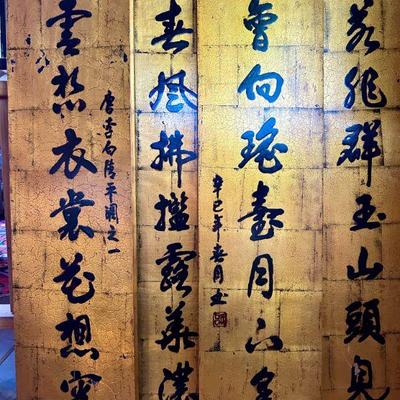 若非群玉山頭見
會向瑤臺月下逢
辛巳年春月
春風拂檻露華濃
唐李白清平調之一
雲想衣裳花想容